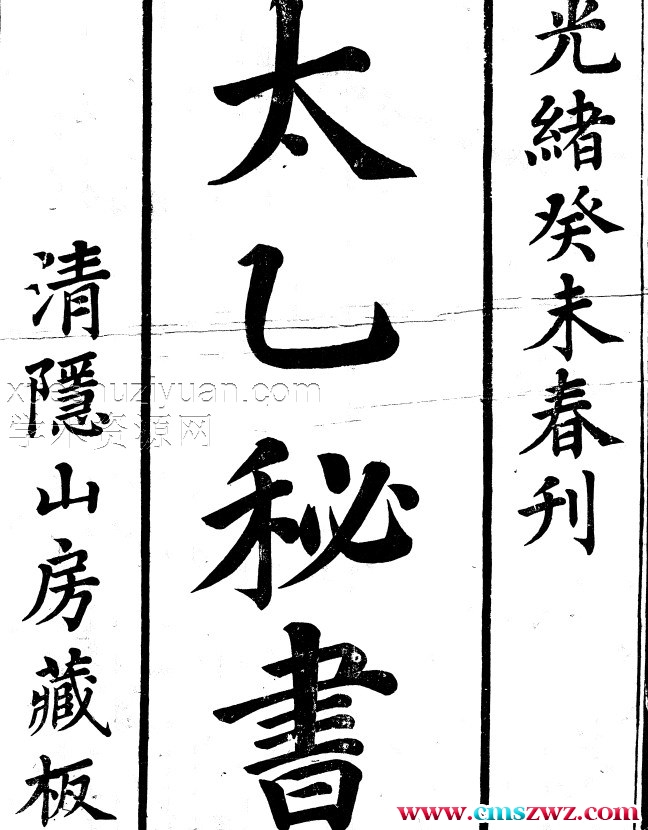 光緒癸未春刊
太乙秘書
清隱山房藏板
学术资源网
www.cmszwz.com